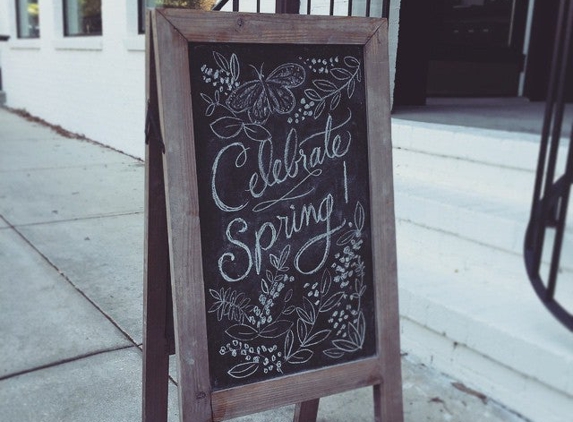 Celebrate
Spring!